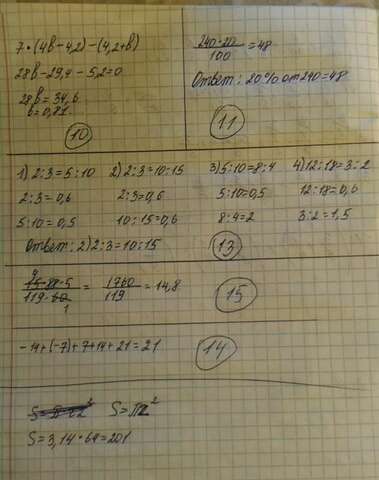 7·(4b-4,2)-(4,2+b)
28b-29,4-5,2=0
28b=34,6
b=0,81
10
240·20/100=48
Ответ: 20% от 240=48
11
1) 2:3=5:10 2) 2:3=10:15 3) 5:10=8:4 4) 12:18=3:2
2:3=0,6 2:3=0,6 5:10=0,5 12:18=0,6
5:10=0,5 10:15=0,6 8:4=2 3:2=1,5
Ответ: 2) 2:3=10:15
13
= 1760/119 =14,8
15
-14+(-7)+7+14+21=21
14
S=πr²
S=3,14·64=201